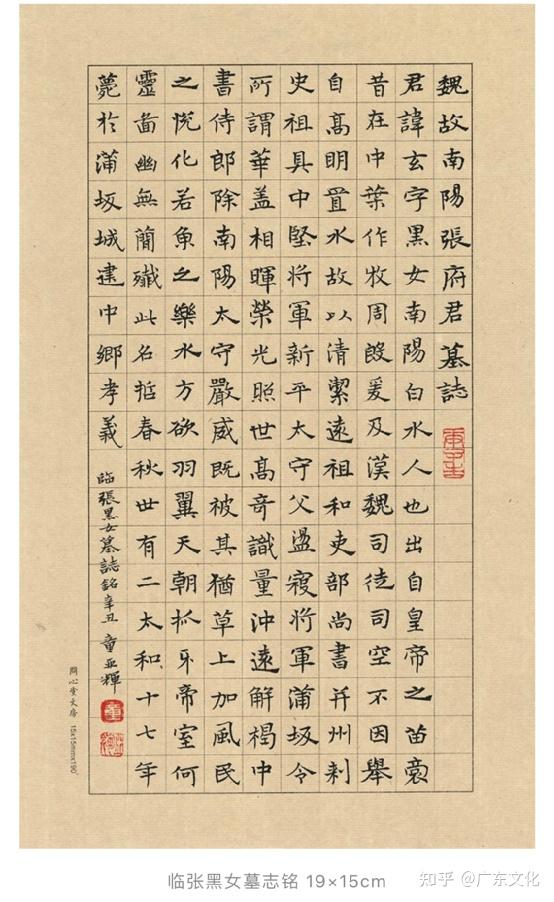 魏故南陽張府君墓誌
君諱玄字黑女南陽白水人也出自皇帝之苗裔
昔在中葉作牧周殷爰及漢魏司徒司空不因舉
自高明置水故以清潔遠祖和吏部尚書并州刺
史祖具中堅將軍新平太守父盪寇將軍蒲坂令
所謂華蓋相暉榮光照世高奇識量沖遠解楬中
書侍郎除南陽太守嚴威既被其猶草上加風民
之悅化若魚之樂水方欲羽翼天朝抓牙帝室何
靈啚幽無簡殲此名哲春秋世有二太和十七年
薨於蒲坂城建中鄉孝義
臨張黑女墓誌銘辛丑童亞輝
心堂文房 15x15mmx190
临张黑女墓志铭 19×15cm
知乎 @广东文化